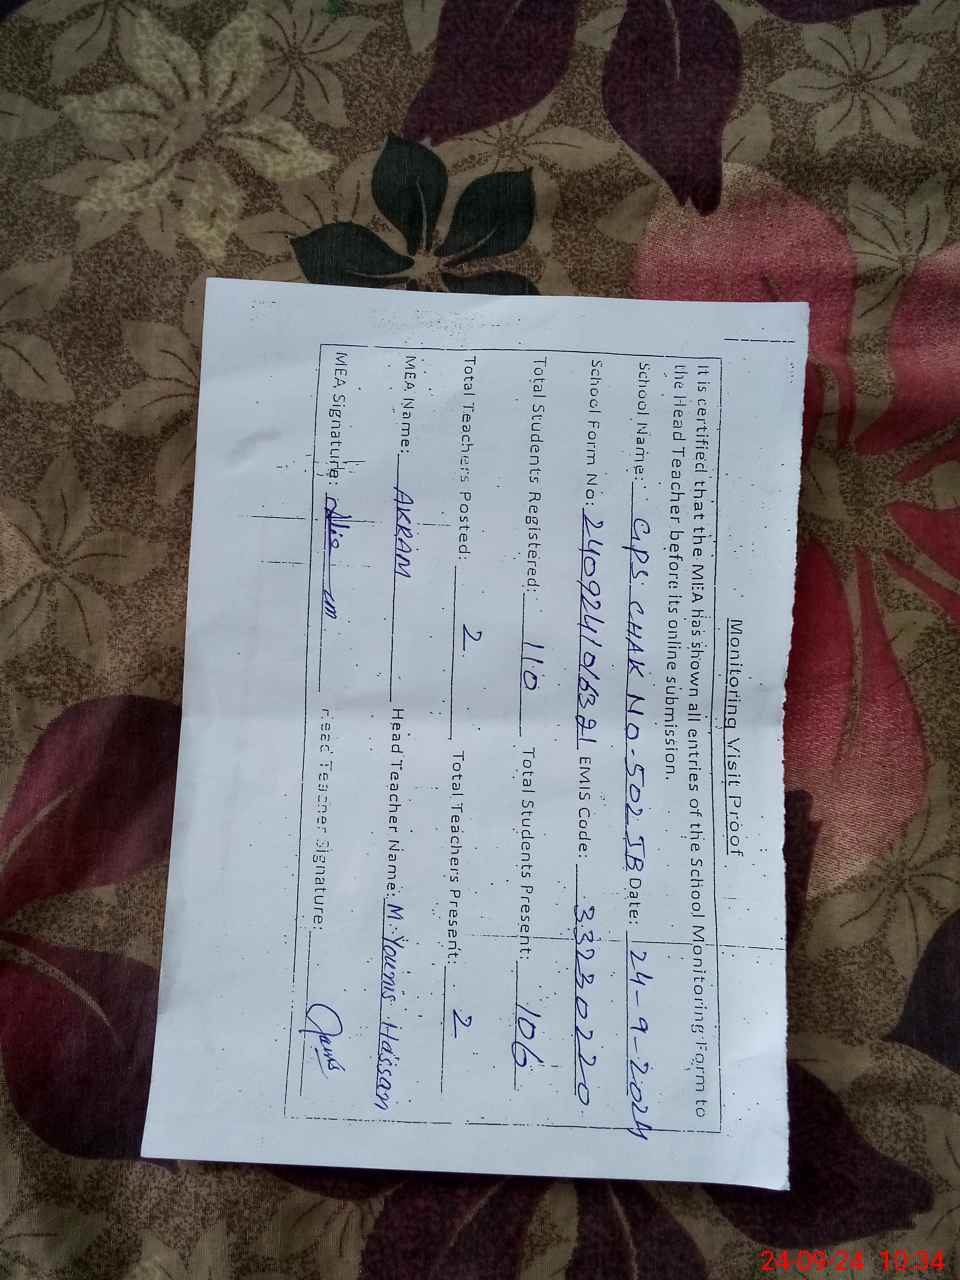 Monitoring Visit Proof
It is certified that the MEA has shown all entries of the School Monitoring Form to
the Head Teacher before its online submission.
School Name: GPS CHAK NO-502 JB Date: 24-9-2024
School Form No: 2409241016321 EMIS Code: 33230220
Total Students Registered: 110 Total Students Present: 106
Total Teachers Posted: 2 Total Teachers Present: 2
MEA Name: AKRAM Head Teacher Name: M. Younis Hassan
MEA Signature: Head Teacher Signature:
24-09-24 10:34